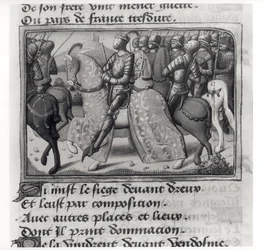 De son frere vint mener guerre.
Ou pays de france tresdure.
Si mist le siege deuant dreux
Et leust par composicion.
Auec autres places et lieux.
Dont il print dominacion.
De la vindrent deuant vendosme.